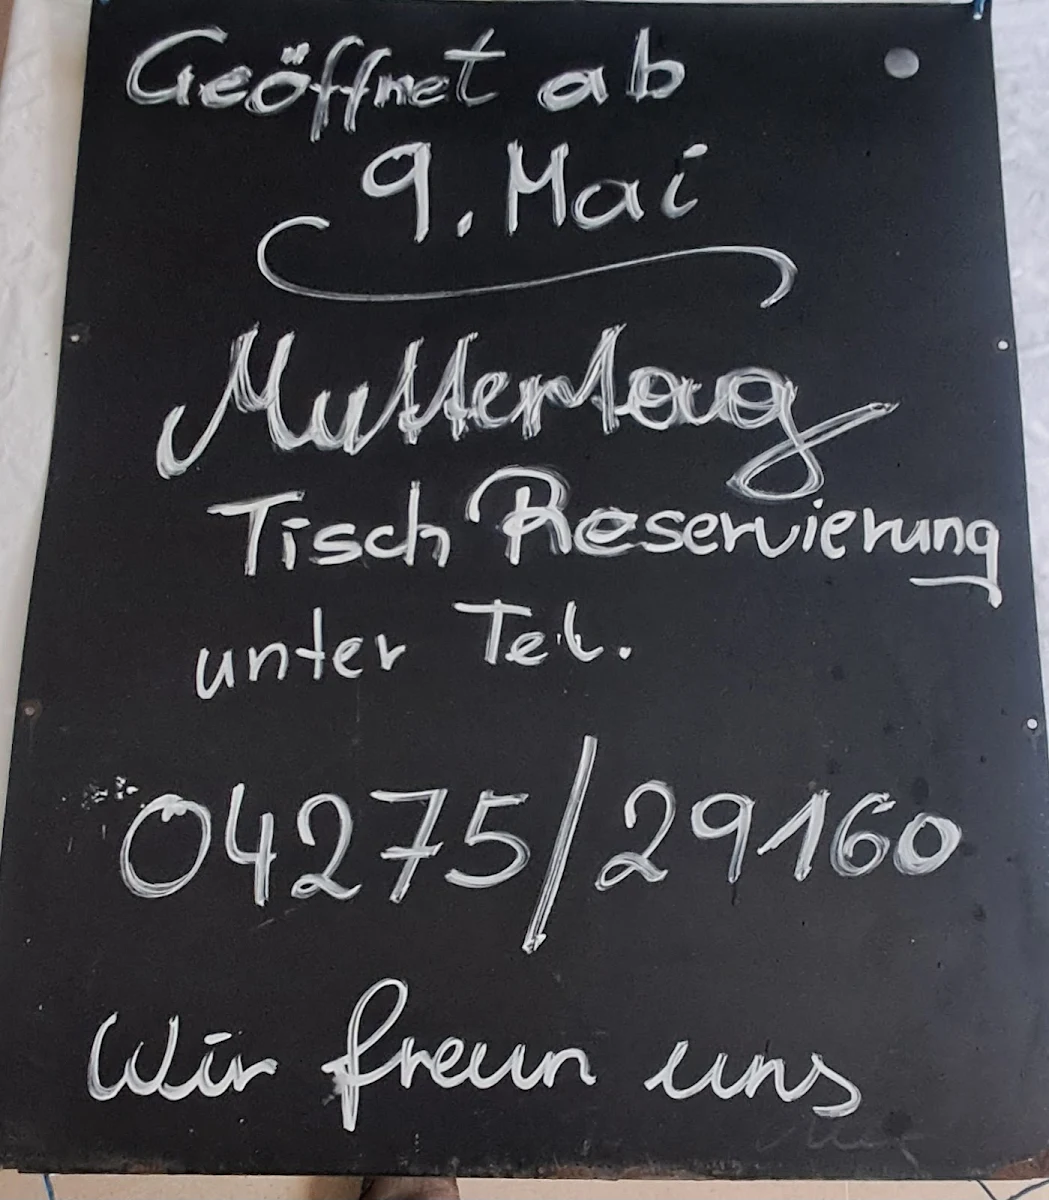 Geöffnet ab
9. Mai
Muttertag
Tisch Reservierung
unter Tel.
04275/29160
Wir freun uns